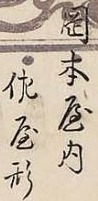 岡本屋内
仇屋形